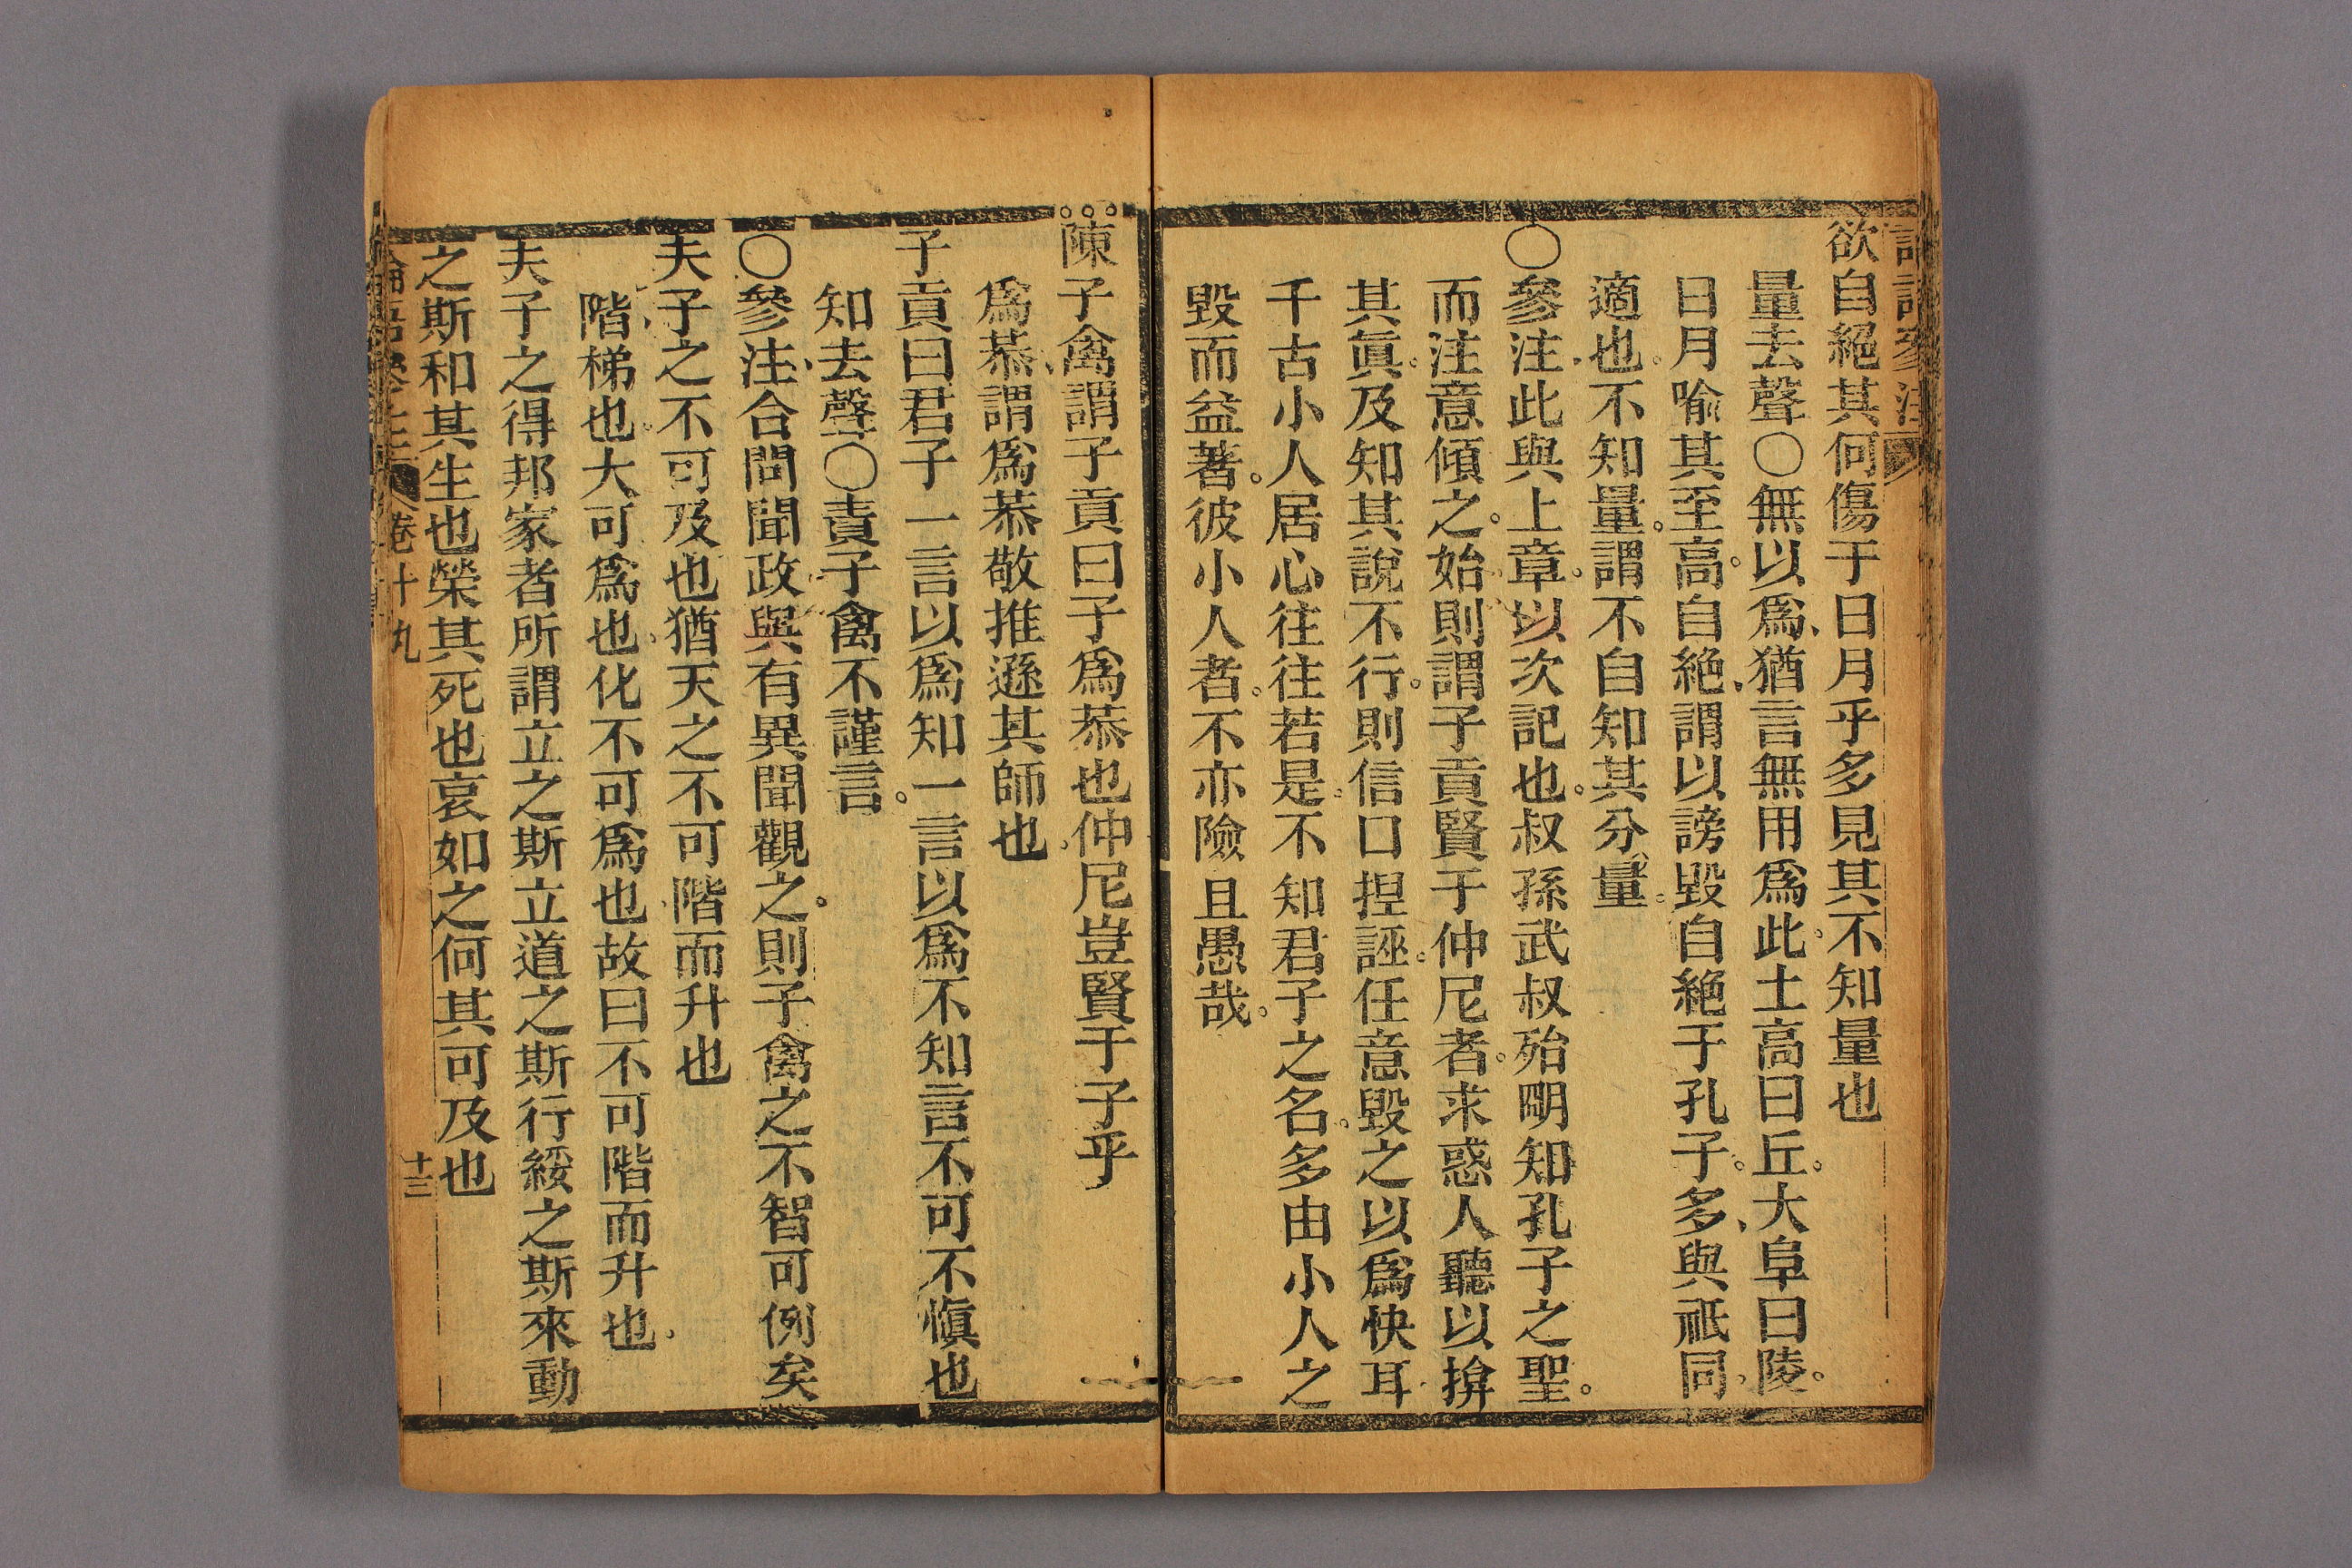 欲自絕其何傷于日月乎多見其不知量也
量去聲○無以爲猶言無用爲此土高曰丘大阜曰陵
日月喻其至高自絕謂以謗毀自絕于孔子多與祇同
適也不知量謂不自知其分量
○參注此與上章以次記也叔孫武叔殆明知孔子之聖
而注意傾之始則謂子貢賢于仲尼者求惑人聽以揜
其眞及知其說不行則信口捏誣任意毀之以爲快耳
千古小人居心往往若是不知君子之名多由小人之
毀而益著彼小人者不亦險且愚哉
陳子禽謂子貢曰子爲恭也仲尼豈賢于子乎
爲恭謂爲恭敬推遜其師也
子貢曰君子一言以爲知一言以爲不知言不可不愼也
知去聲○責子禽不謹言
○參注合問聞政與有異聞觀之則子禽之不智可例矣
夫子之不可及也猶天之不可階而升也
階梯也大可爲也化不可爲也故曰不可階而升也
夫子之得邦家者所謂立之斯立道之斯行綏之斯來動
之斯和其生也榮其死也哀如之何其可及也
論語參注 卷十九 十三